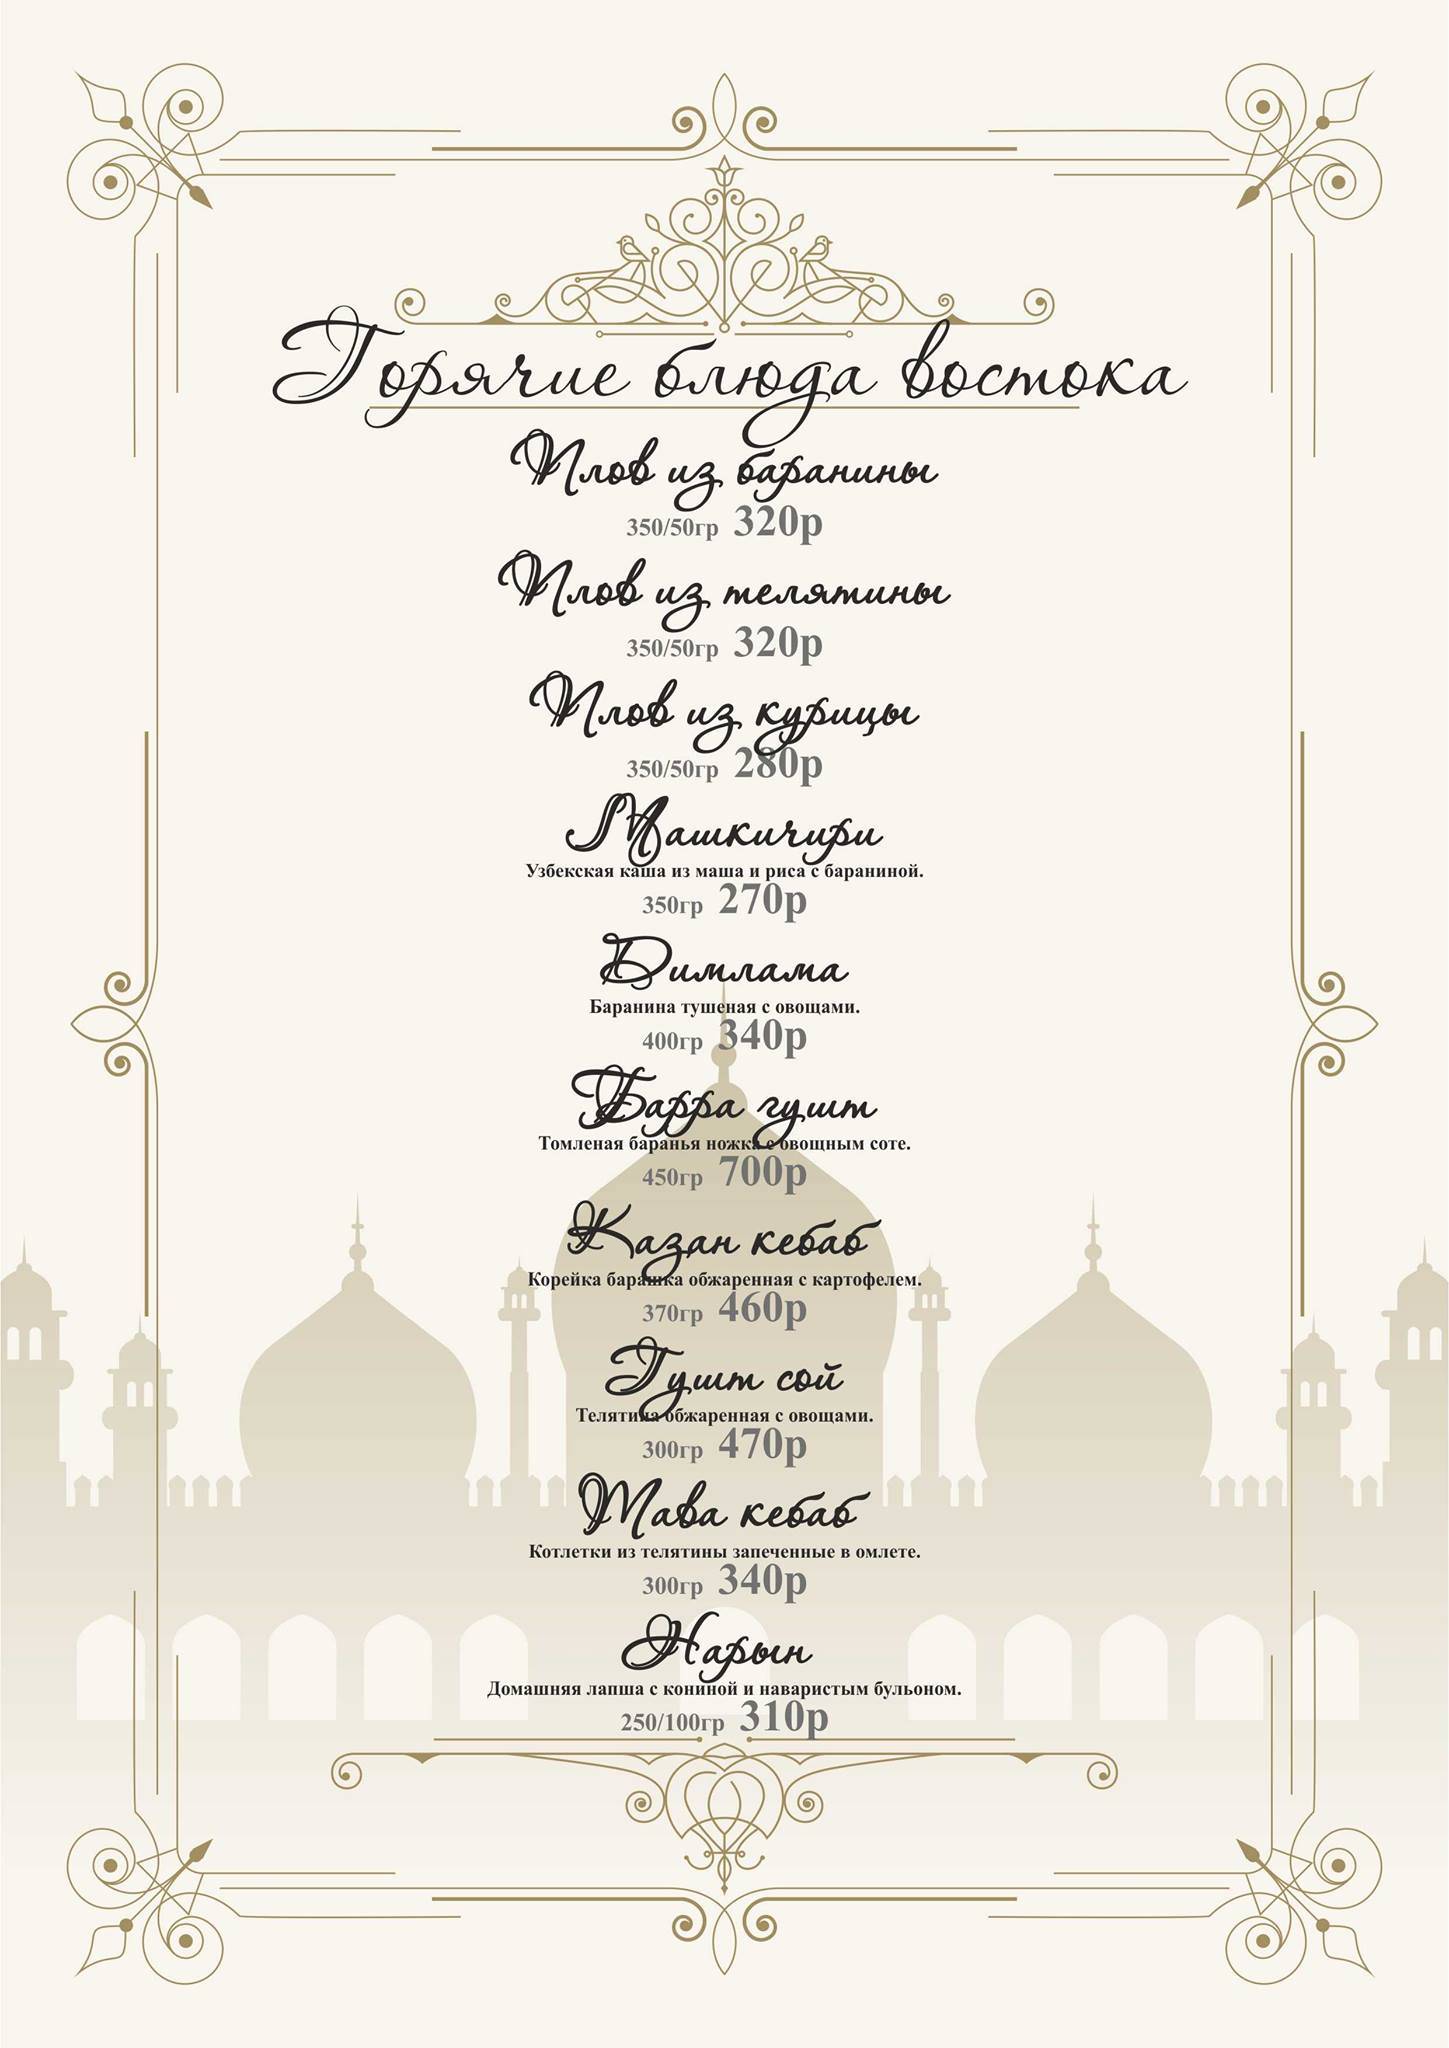 Горячие блюда востока
Плов из баранины
350/50гр 320р
Плов из телятины
350/50гр 320р
Плов из курицы
350/50гр 280р
Машкичири
Узбекская каша из маша и риса с бараниной.
350гр 270р
Димлама
Баранина тушеная с овощами.
400гр 340р
Барра гушт
Томленая баранья ножка с овощным соте.
450гр 700р
Казан кебаб
Корейка барашка обжаренная с картофелем.
370гр 460р
Гушт сой
Телятина обжаренная с овощами.
300гр 470р
Тава кебаб
Котлетки из телятины запеченные в омлете.
300гр 340р
Нарын
Домашняя лапша с кониной и наваристым бульоном.
250/100гр 310р